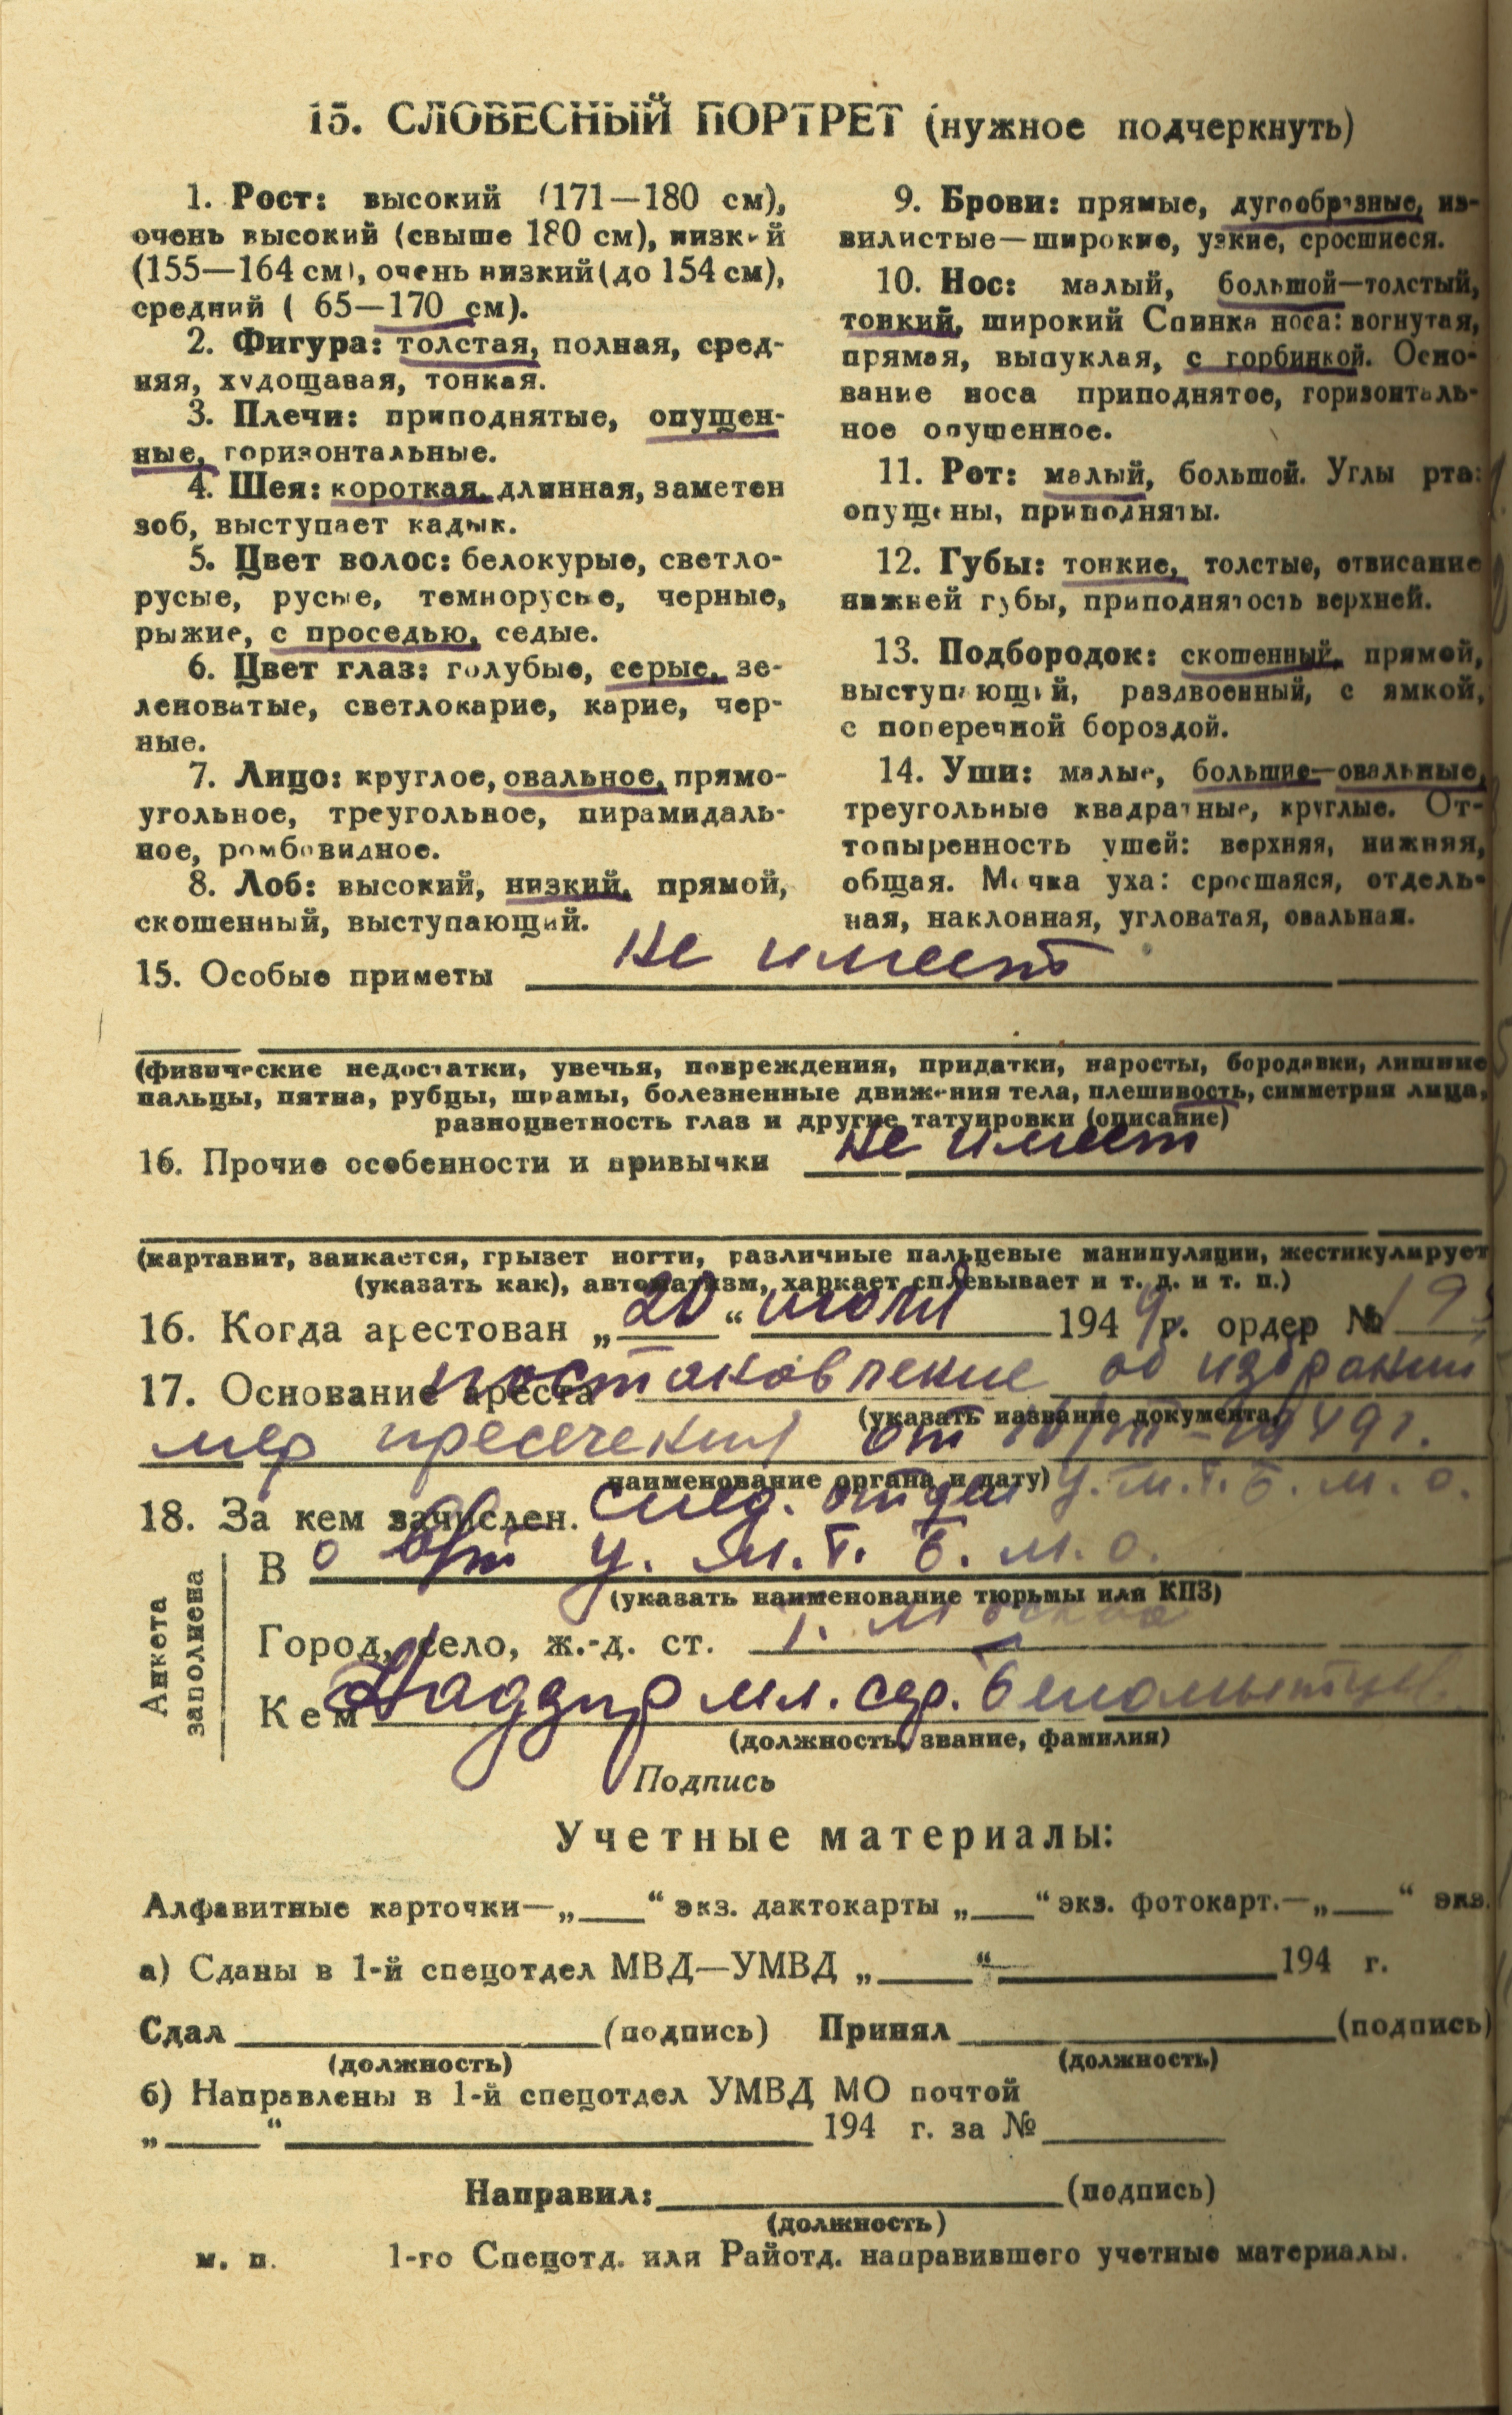 15. СЛОВЕСНЫЙ ПОРТРЕТ (нужное подчеркнуть)
1. Рост: высокий (171—180 см),
очень высокий (свыше 180 см), низкий
(155—164 см), очень низкий (до 154 см),
средний ( 65—170 см).
2. Фигура: толстая, полная, сред-
няя, худощавая, тонкая.
3. Плечи: приподнятые, опущен-
ные, горизонтальные.
4. Шея: короткая, длинная, заметен
зоб, выступает кадык.
5. Цвет волос: белокурые, светло-
русые, русые, темнорусые, черные,
рыжие, с проседью, седые.
6. Цвет глаз: голубые, серые, зе-
леноватые, светлокарие, карие, чер-
ные.
7. Лицо: круглое, овальное, прямо-
угольное, треугольное, пирамидаль-
ное, ромбовидное.
8. Лоб: высокий, низкий, прямой,
скошенный, выступающий.
9. Брови: прямые, дугообразные, из-
вилистые—широкие, узкие, сросшиеся.
10. Нос: малый, большой—толстый,
тонкий, широкий Спинка носа: вогнутая,
прямая, выпуклая, с горбинкой. Осно-
вание носа приподнятое, горизонталь-
ное опущенное.
11. Рот: малый, большой. Углы рта:
опущены, приподняты.
12. Губы: тонкие, толстые, отвисание
нижней губы, приподнятость верхней.
13. Подбородок: скошенный, прямой,
выступающий, раздвоенный, с ямкой,
с поперечной бороздой.
14. Уши: малые, большие—овальные,
треугольные квадратные, круглые. От-
топыренность ушей: верхняя, нижняя,
общая. Мочка уха: сросшаяся, отдель-
ная, наклонная, угловатая, овальная.
15. Особые приметы не имеет
(физические недостатки, увечья, повреждения, придатки, наросты, бородавки, лишние
пальцы, пятна, рубцы, шрамы, болезненные движения тела, плешивость, симметрия лица,
разноцветность глаз и другие татуировки (описание)
16. Прочие особенности и привычки не имеет
(картавит, заикается, грызет ногти, различные пальцевые манипуляции, жестикулирует
(указать как), автоматизм, харкает сплевывает и т. д. и т. п.)
16. Когда арестован „20“ июля 1949 г. ордер №
17. Основание ареста постановление об избрании
(указать название документа,
мер пресечения от 1949г.
наименование органа и дату)
18. За кем зачислен. след. отдел У. М.Г.Б. М. О.
Анкета заполнена
В У. М.Г.Б. М.О.
(указать наименование тюрьмы или КПЗ)
Город, село, ж.-д. ст. г. Москва
Кем Надзир мл. сер.
(должность, звание, фамилия)
Подпись
Учетные материалы:
Алфавитные карточки—„___“ экз. дактокарты „___“ экз. фотокарт.—„___“ экз.
а) Сданы в 1-й спецотдел МВД—УМВД „___“ ___ 194 г.
Сдал ___ (подпись) Принял ___ (подпись)
(должность) (должность)
б) Направлены в 1-й спецотдел УМВД МО почтой
„___“ ___ 194 г. за № ___
Направил: ___ (подпись)
(должность)
м. п. 1-го Спецотд. или Райотд. направившего учетные материалы.